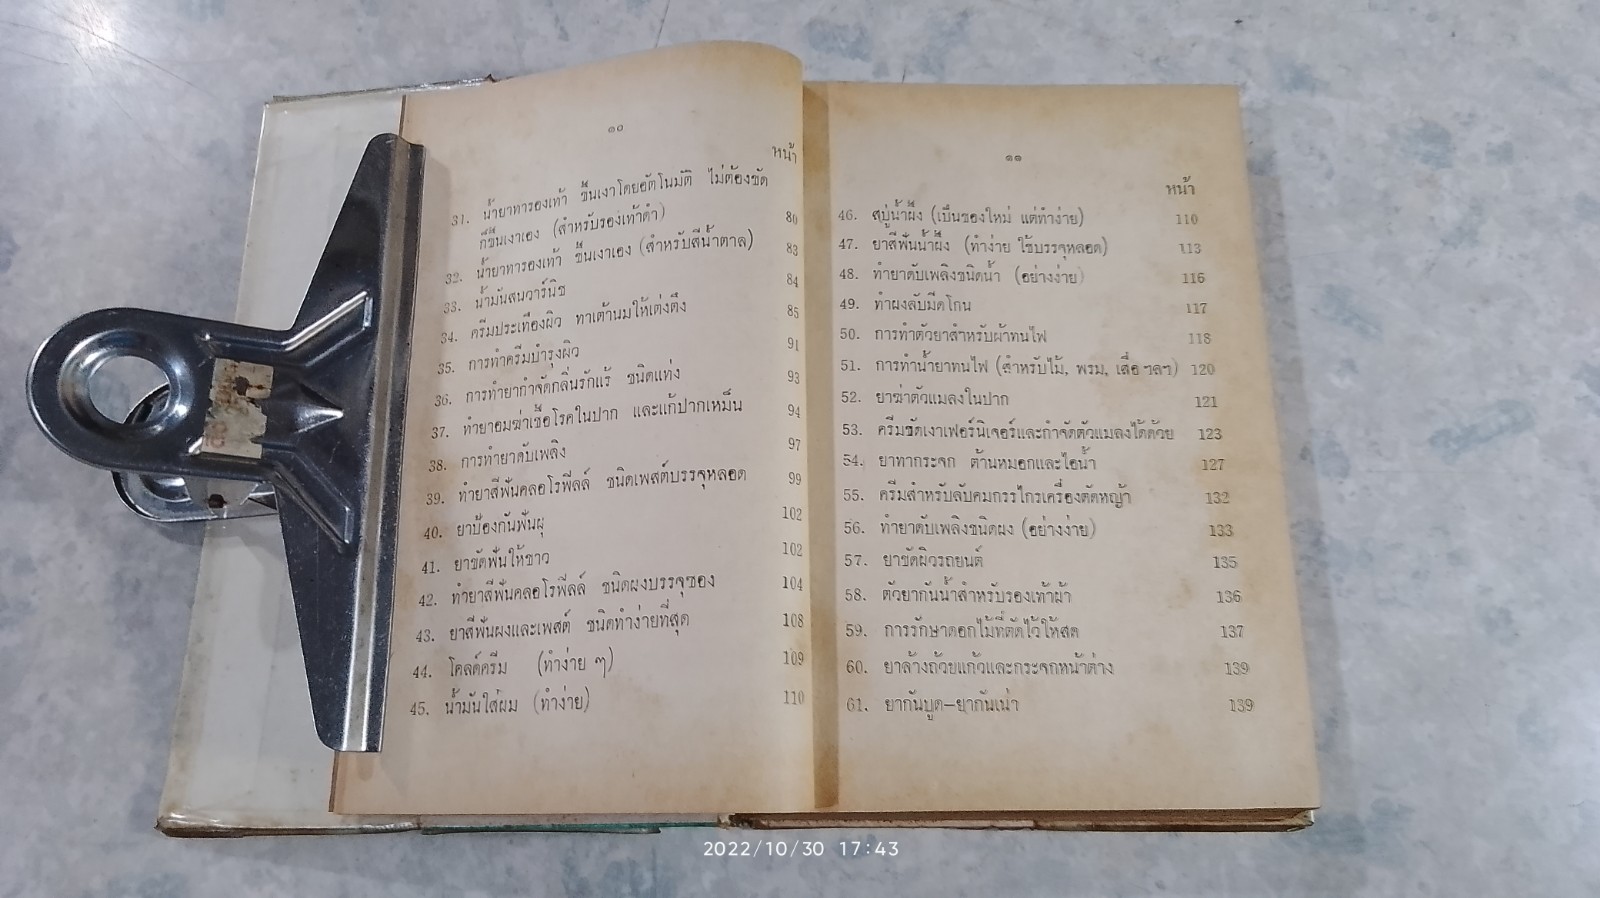 ๑๐
หน้า
31. น้ำยาทารองเท้า ขึ้นเงาโดยอัตโนมัติ ไม่ต้องขัด
ก็ขึ้นเงาเอง (สำหรับรองเท้าดำ) 80
32. น้ำยาทารองเท้า ขึ้นเงาเอง (สำหรับสีน้ำตาล) 83
33. น้ำมันสนวาร์นิช 84
34. ครีมประเทืองผิว ทาเต้านมให้เต่งตึง 85
35. การทำครีมบำรุงผิว 91
36. การทำยากำจัดกลิ่นรักแร้ ชนิดแท่ง 93
37. ทำยาอมฆ่าเชื้อโรคในปาก และแก้ปากเหม็น 94
38. การทำยาดับเพลิง 97
39. ทำยาสีฟันคลอโรฟีลล์ ชนิดเพสต์บรรจุหลอด 99
40. ยาป้องกันฟันผุ 102
41. ยาขัดฟันให้ขาว 102
42. ทำยาสีฟันคลอโรฟีลล์ ชนิดผงบรรจุซอง 104
43. ยาสีฟันผงและเพสต์ ชนิดทำง่ายที่สุด 108
44. โคลด์ครีม (ทำง่าย ๆ) 109
45. น้ำมันใส่ผม (ทำง่าย) 110
๑๑
หน้า
46. สบู่น้ำผึ้ง (เป็นของใหม่ แต่ทำง่าย) 110
47. ยาสีฟันน้ำผึ้ง (ทำง่าย ใช้บรรจุหลอด) 113
48. ทำยาดับเพลิงชนิดน้ำ (อย่างง่าย) 116
49. ทำผงลับมีดโกน 117
50. การทำตัวยาสำหรับผ้าทนไฟ 118
51. การทำน้ำยาทนไฟ (สำหรับไม้, พรม, เสื้อ ฯลฯ) 120
52. ยาฆ่าตัวแมลงในปาก 121
53. ครีมขัดเงาเฟอร์นิเจอร์และกำจัดตัวแมลงได้ด้วย 123
54. ยาทากระจก ต้านหมอกและไอน้ำ 127
55. ครีมสำหรับลับคมกรรไกรเครื่องตัดหญ้า 132
56. ทำยาดับเพลิงชนิดผง (อย่างง่าย) 133
57. ยาขัดผิวรถยนต์ 135
58. ตัวยากันน้ำสำหรับรองเท้าผ้า 136
59. การรักษาดอกไม้ที่ตัดไว้ให้สด 137
60. ยาล้างถ้วยแก้วและกระจกหน้าต่าง 139
61. ยากันบูด-ยากันเน่า 139
2022/10/30 17:43